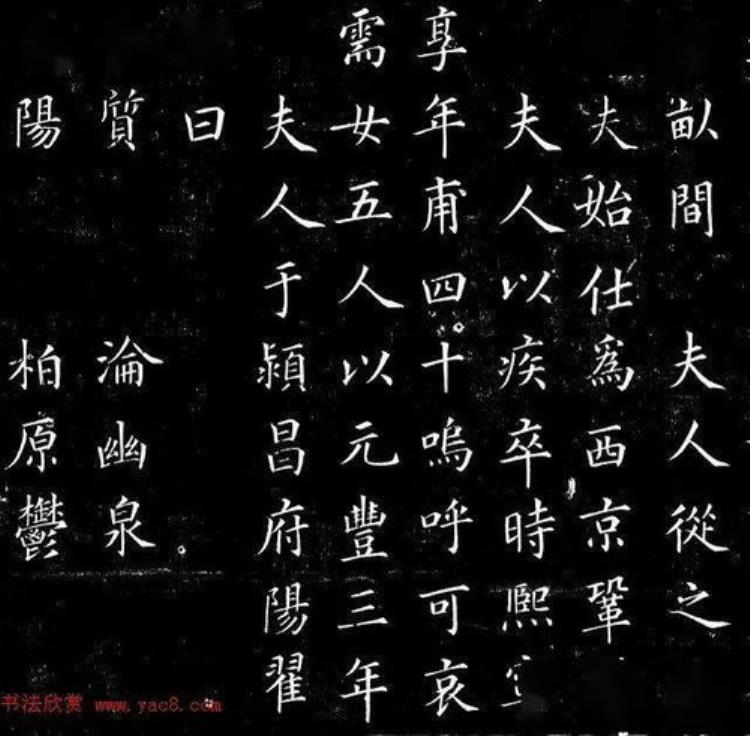 畝間 夫人從之
夫始仕爲西京鞏
夫人以疾卒時熙寧
享年甫四十嗚呼可哀
需女五人以元豐三年
夫人于潁昌府陽翟
曰
質 淪幽泉
陽 柏原鬱
书法欣赏 www.yac8.com